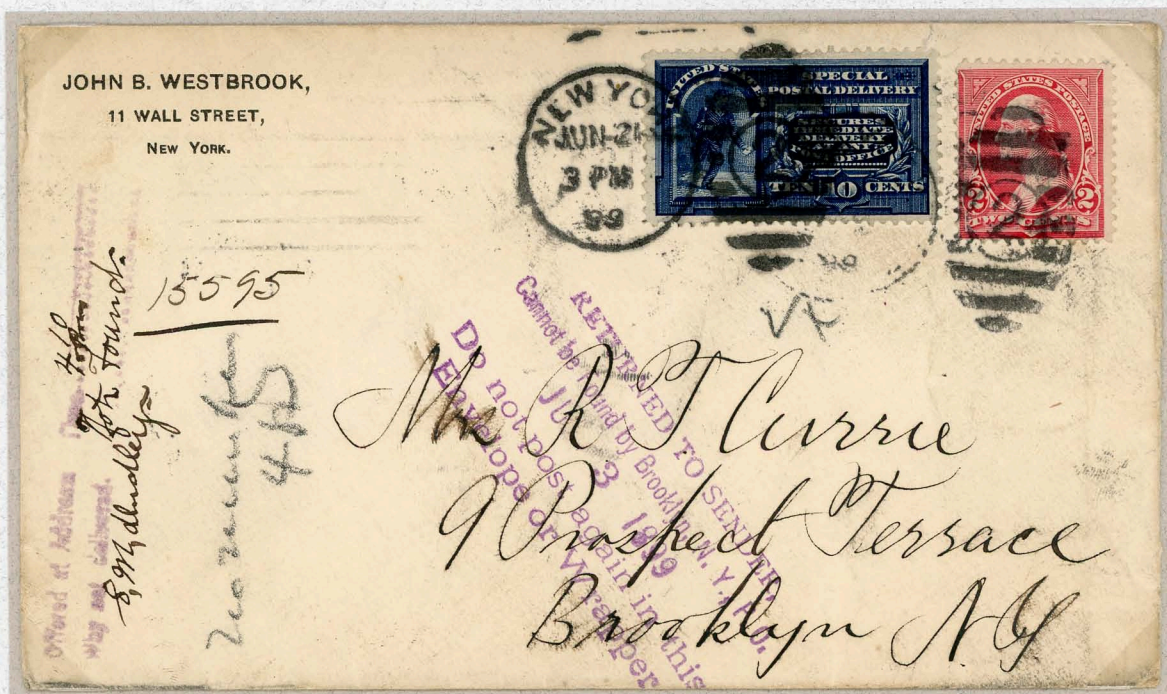 JOHN B. WESTBROOK,
11 WALL STREET,
NEW YORK.
NEW YO
JUN-21
3 PM
99
UNITED STATES
SPECIAL
POSTAL DELIVERY
SECURES
IMMEDIATE
DELIVERY
AT ANY
OFFICE
TEN 10 CENTS
UNITED STATES POSTAGE
2 2
TWO CENTS
15595
Not Found
Offered at Address
Why not delivered.
415
VF
RETURNED TO SENDER
Cannot be found by Brooklyn, N. Y., P.O.
3 1899
Do not post again in this
Envelope or Wrapper
Mr R T Currie
9 Prospect Terrace
Brooklyn N.Y